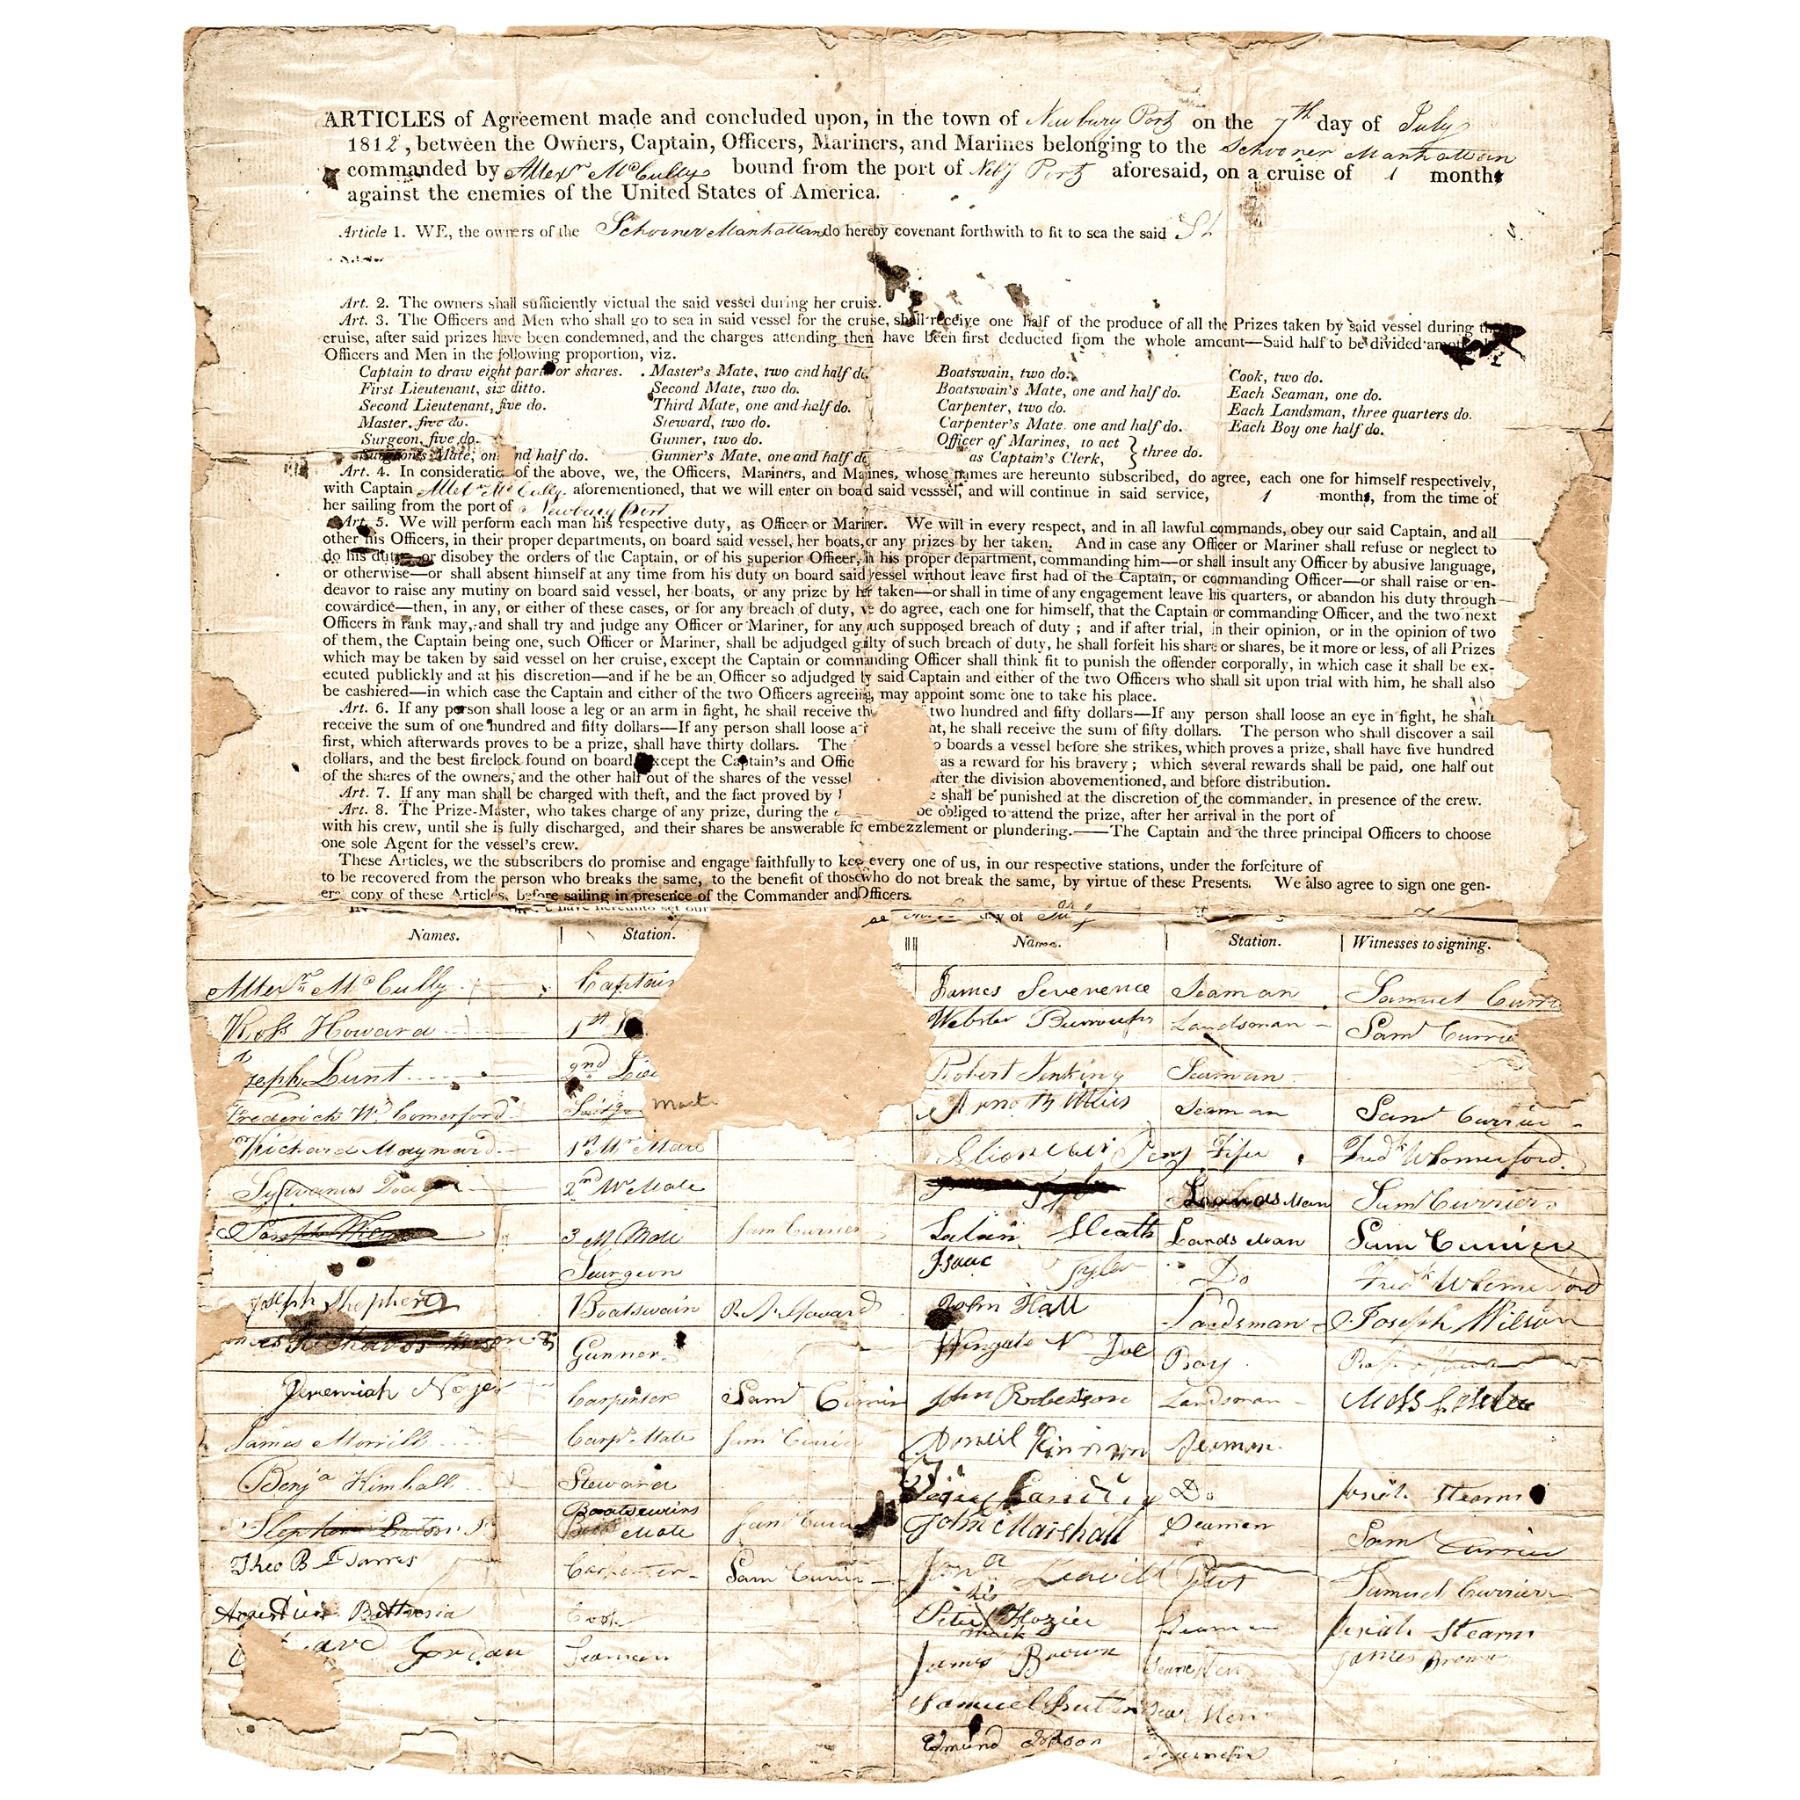 ARTICLES of Agreement made and concluded upon, in the town of Newbury Port on the 7th day of July
1812, between the Owners, Captain, Officers, Mariners, and Marines belonging to the Schooner Manhattan
commanded by Allexr McCully bound from the port of Nby Port aforesaid, on a cruise of 1 month
against the enemies of the United States of America.
Article 1. WE, the owners of the Schooner Manhattan do hereby covenant forthwith to fit to sea the said
Art. 2. The owners shall sufficiently victual the said vessel during her cruise.
Art. 3. The Officers and Men who shall go to sea in said vessel for the cruise, shall receive one half of the produce of all the Prizes taken by said vessel during
cruise, after said prizes have been condemned, and the charges attending them have been first deducted from the whole amount—Said half to be divided
Officers and Men in the following proportion, viz.
Captain to draw eight parts or shares. Master's Mate, two and half do. Boatswain, two do. Cook, two do.
First Lieutenant, six ditto. Second Mate, two do. Boatswain's Mate, one and half do. Each Seaman, one do.
Second Lieutenant, five do. Third Mate, one and half do. Carpenter, two do. Each Landsman, three quarters do.
Master, five do. Steward, two do. Carpenter's Mate, one and half do. Each Boy one half do.
Surgeon, five do. Gunner, two do. Officer of Marines, to act
Surgeon's Mate, one and half do. Gunner's Mate, one and half do. as Captain's Clerk, } three do.
Art. 4. In consideration of the above, we, the Officers, Mariners, and Marines, whose names are hereunto subscribed, do agree, each one for himself respectively,
with Captain Allexr McCully aforementioned, that we will enter on board said vesssel, and will continue in said service, 1 month, from the time of
her sailing from the port of Newbury Port
Art. 5. We will perform each man his respective duty, as Officer or Mariner. We will in every respect, and in all lawful commands, obey our said Captain, and all
other his Officers, in their proper departments, on board said vessel, her boats, or any prizes by her taken. And in case any Officer or Mariner shall refuse or neglect to
do his duty—or disobey the orders of the Captain, or of his superior Officer, in his proper department, commanding him—or shall insult any Officer by abusive language,
or otherwise—or shall absent himself at any time from his duty on board said vessel without leave first had of the Captain, or commanding Officer—or shall raise or en-
deavor to raise any mutiny on board said vessel, her boats, or any prize by her taken—or shall in time of any engagement leave his quarters, or abandon his duty through
cowardice—then, in any, or either of these cases, or for any breach of duty, we do agree, each one for himself, that the Captain or commanding Officer, and the two next
Officers in rank may, and shall try and judge any Officer or Mariner, for any such supposed breach of duty; and if after trial, in their opinion, or in the opinion of two
of them, the Captain being one, such Officer or Mariner, shall be adjudged guilty of such breach of duty, he shall forfeit his share or shares, be it more or less, of all Prizes
which may be taken by said vessel on her cruise, except the Captain or commanding Officer shall think fit to punish the offender corporally, in which case it shall be ex-
ecuted publickly and at his discretion—and if he be an Officer so adjudged by said Captain and either of the two Officers who shall sit upon trial with him, he shall also
be cashiered—in which case the Captain and either of the two Officers agreeing, may appoint some one to take his place.
Art. 6. If any person shall loose a leg or an arm in fight, he shall receive the two hundred and fifty dollars—If any person shall loose an eye in fight, he shall
receive the sum of one hundred and fifty dollars—If any person shall loose a nt, he shall receive the sum of fifty dollars. The person who shall discover a sail
first, which afterwards proves to be a prize, shall have thirty dollars. The boards a vessel before she strikes, which proves a prize, shall have five hundred
dollars, and the best firelock found on board except the Captain's and Offic as a reward for his bravery; which several rewards shall be paid, one half out
of the shares of the owners, and the other half out of the shares of the vessel after the division abovementioned, and before distribution.
Art. 7. If any man shall be charged with theft, and the fact proved by shall be punished at the discretion of the commander, in presence of the crew.
Art. 8. The Prize-Master, who takes charge of any prize, during the be obliged to attend the prize, after her arrival in the port of
with his crew, until she is fully discharged, and their shares be answerable for embezzlement or plundering.—The Captain and the three principal Officers to choose
one sole Agent for the vessel's crew.
These Articles, we the subscribers do promise and engage faithfully to keep every one of us, in our respective stations, under the forfeiture of
to be recovered from the person who breaks the same, to the benefit of those who do not break the same, by virtue of these Presents. We also agree to sign one gen-
eral copy of these Articles, before sailing in presence of the Commander and Officers.
have hereunto set our day of July
Names. Station. Name. Station. Witnesses to signing.
Allexr McCully Captain James Severence Seaman Samuel Curri
Ross Howard 1st Webster Burroughs Landsman Saml Currie
Joseph Lunt 2nd Robert Jenkins Seaman
Frederick W Comerford Seaman Saml Currier
Richard Maynard 1st Mr Mate Fifer Fredk W Comerford
Sylvanus 2nd Mr Mate Landsman Saml Currier
3 M Mate Sam Currier Heath Landsman Sam Currier
Surgeon Isaac Tyler Do Fredk W Comerford
Joseph Shepherd Boatswain R Howard John Hall Landsman Joseph Wilson
Gunner Wingate N Doe Boy
Jeremiah Noyes Carpenter Saml Currier John Robinson Landsman
James Morrill Carpr Mate Saml Currier Seaman
Benja Kimball Steward Do Josiah Stearns
Boatswins Mate Sam John Marshall Seamen Saml Currier
Theo B Carpenter Sam Currier Jona Leavitt Samuel Currier
Cook Peter his mark Seaman Josiah Stearns
Gordan Seaman James Brown James Brown
Samuel Butler Sea Men
Edmund Seaman